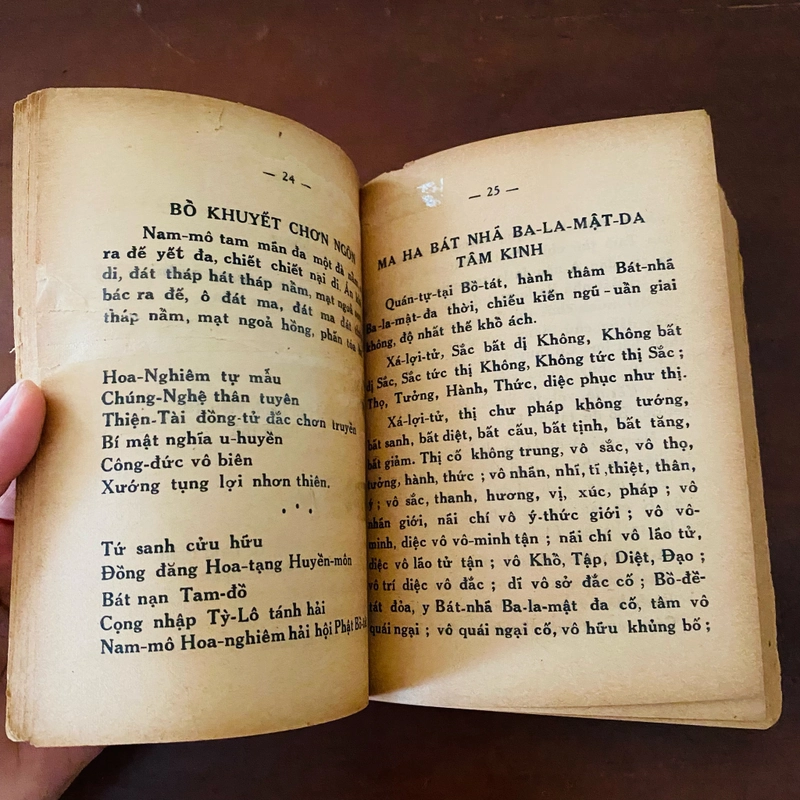 — 24 —
BỒ KHUYẾT CHƠN NGÔN
Nam-mô tam mãn đa một đà nẫm
ra đế yết đa, chiết chiết nại di. Án
di, đát tháp hát tháp nầm, mạt ngoả
bác ra đế, ô đát ma, đát ma đát
tháp nầm, mạt ngoả hồng, phấn
Hoa-Nghiêm tự mẫu
Chúng-Nghệ thân tuyên
Thiện-Tài đồng-tử đắc chơn truyền
Bí mật nghĩa u-huyền
Công-đức vô biên
Xướng tụng lợi nhơn thiên.
• • •
Tứ sanh cửu hữu
Đồng đăng Hoa-tạng Huyền-môn
Bát nạn Tam-đồ
Cọng nhập Tỳ-Lô tánh hải
Nam-mô Hoa-nghiêm hải hội Phật Bồ-tá
— 25 —
MA HA BÁT NHÃ BA-LA-MẬT-DA
TÂM KINH
Quán-tự-tại Bồ-tát, hành thâm Bát-nhã
Ba-la-mật-đa thời, chiếu kiến ngũ-uẩn giai
không, độ nhất thế khổ ách.
Xá-lợi-tử, Sắc bất dị Không, Không bất
dị Sắc, Sắc tức thị Không, Không tức thị Sắc ;
Thọ, Tưởng, Hành, Thức, diệc phục như thị.
Xá-lợi-tử, thị chư pháp không tướng,
bất sanh, bất diệt, bất cấu, bất tịnh, bất tăng,
bất giảm. Thị cố không trung, vô sắc, vô thọ,
tưởng, hành, thức ; vô nhãn, nhĩ, tĩ ,thiệt, thân,
ý ; vô sắc, thanh, hương, vị, xúc, pháp ; vô
nhãn giới, nãi chí vô ý-thức giới ; vô vô-
minh, diệc vô vô-minh tận ; nãi chí vô lão tử,
diệc vô lão tử tận ; vô Khổ, Tập, Diệt, Đạo ;
vô trí diệc vô đắc ; dĩ vô sở đắc cố ; Bồ-đề-
tát đỏa, y Bát-nhã Ba-la-mật đa cố, tâm vô
quái ngại ; vô quái ngại cố, vô hữu khủng bố ;